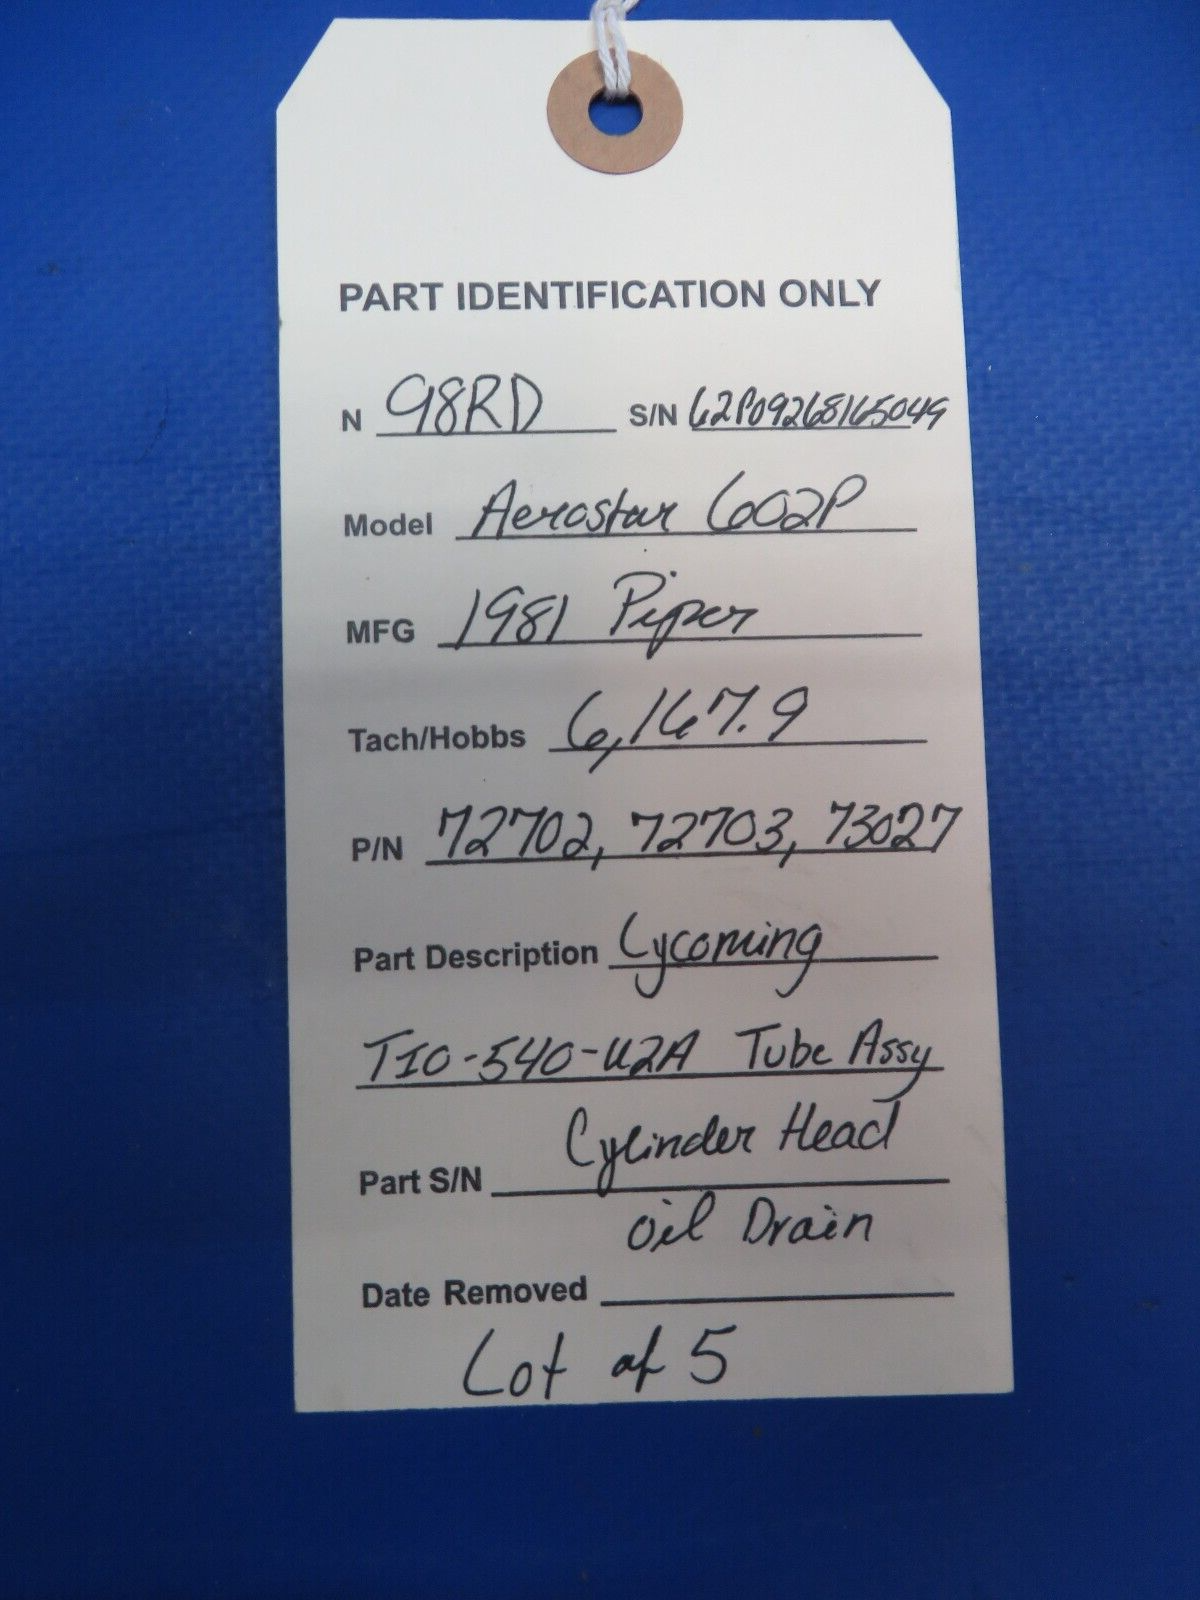 PART IDENTIFICATION ONLY
N 98RD S/N 62P09268165049
Model Aerostar 602P
MFG 1981 Piper
Tach/Hobbs 6,167.9
P/N 72702, 72703, 73027
Part Description Lycoming
TIO-540-U2A Tube Assy
Cylinder Head
Part S/N
Oil Drain
Date Removed
Lot of 5